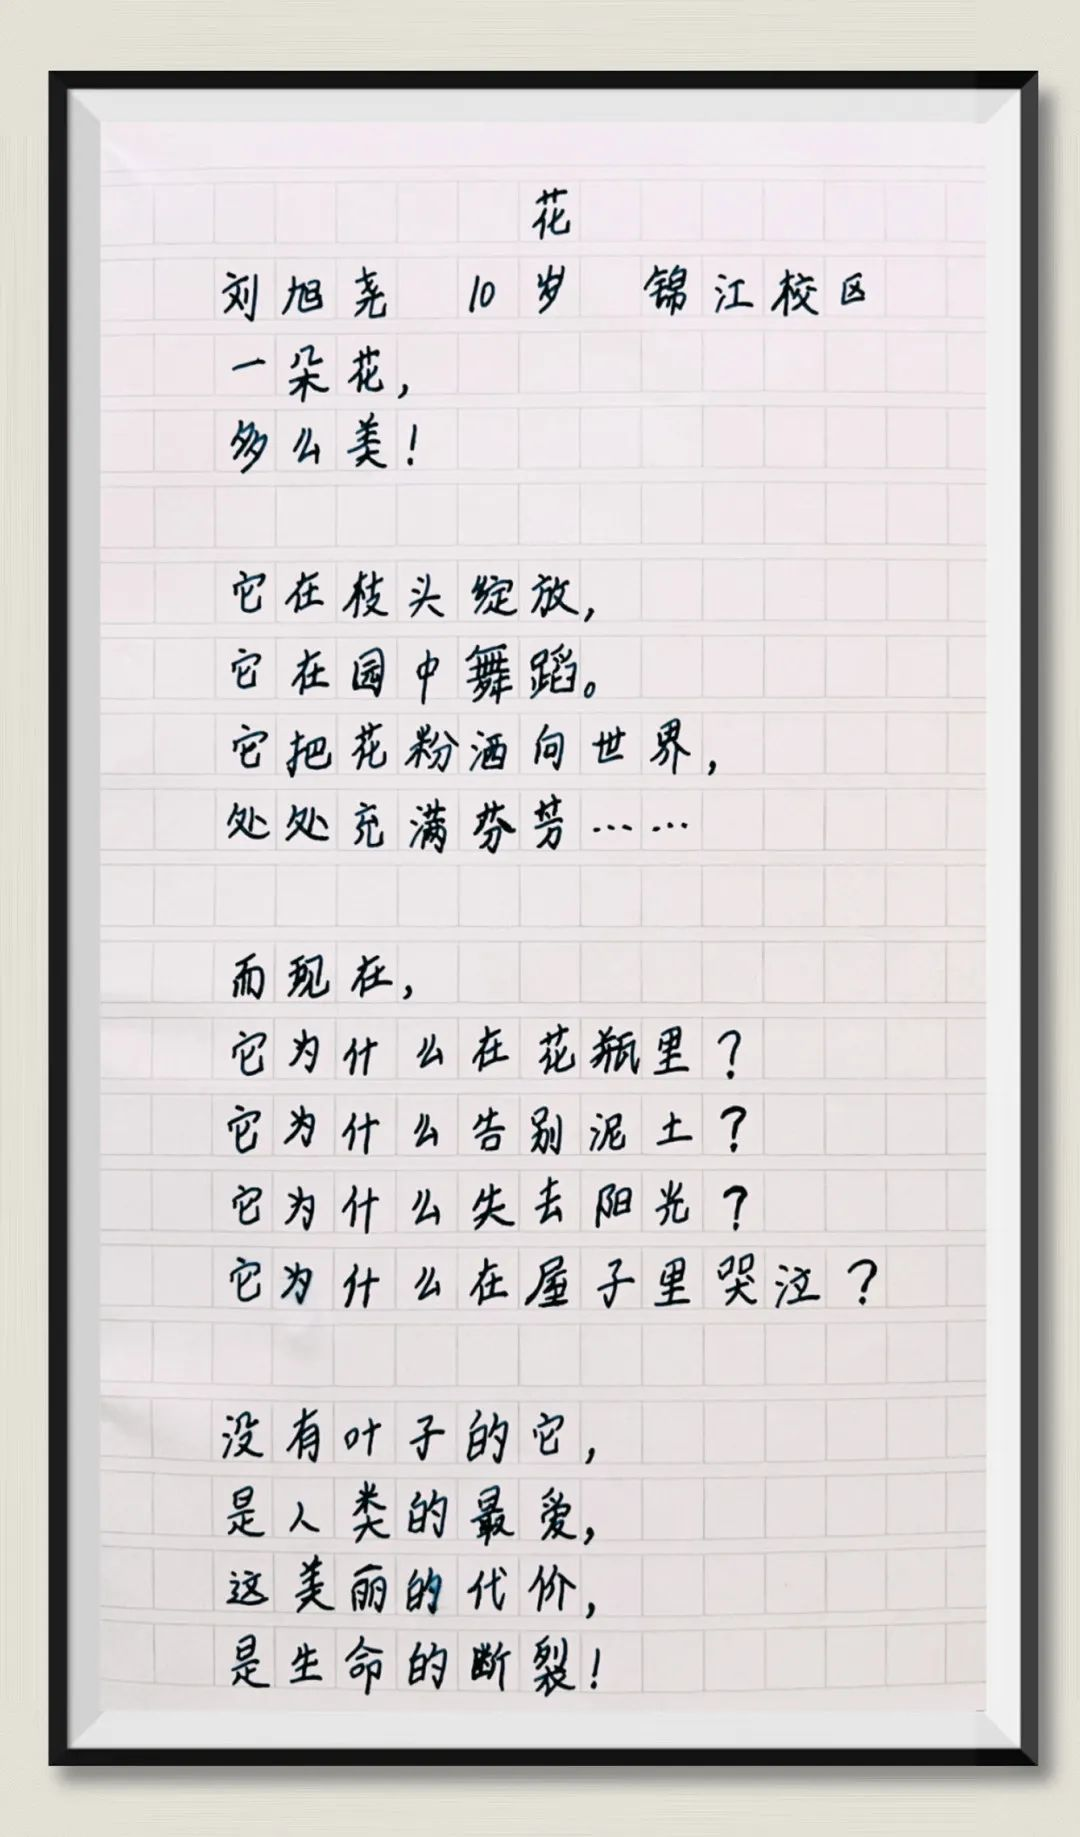 花
刘旭尧 10岁 锦江校区
一朵花，
多么美！
它在枝头绽放，
它在园中舞蹈。
它把花粉洒向世界，
处处充满芬芳……
而现在，
它为什么在花瓶里？
它为什么告别泥土？
它为什么失去阳光？
它为什么在屋子里哭泣？
没有叶子的它，
是人类的最爱，
这美丽的代价，
是生命的断裂！